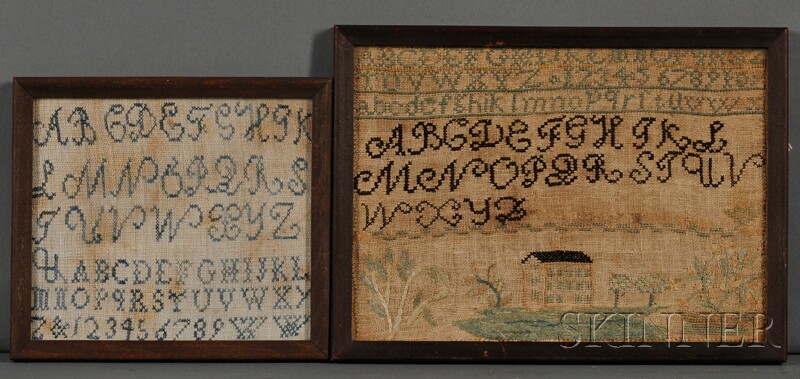 A B C D E F G H I K
L M N O P Q R S
T U V W X Y Z
U A B C D E F G H I J K L
M N O P Q R S T U V W X Y
Z & 1 2 3 4 5 6 7 8 9 W W
U V W X Y Z 1 2 3 4 5 6 7 8 9
a b c d e f g h i k l m n o p q r s t u v w x
A B C D E F G H I K L
M N O P Q R S T U V
W X Y Z
SKINNER